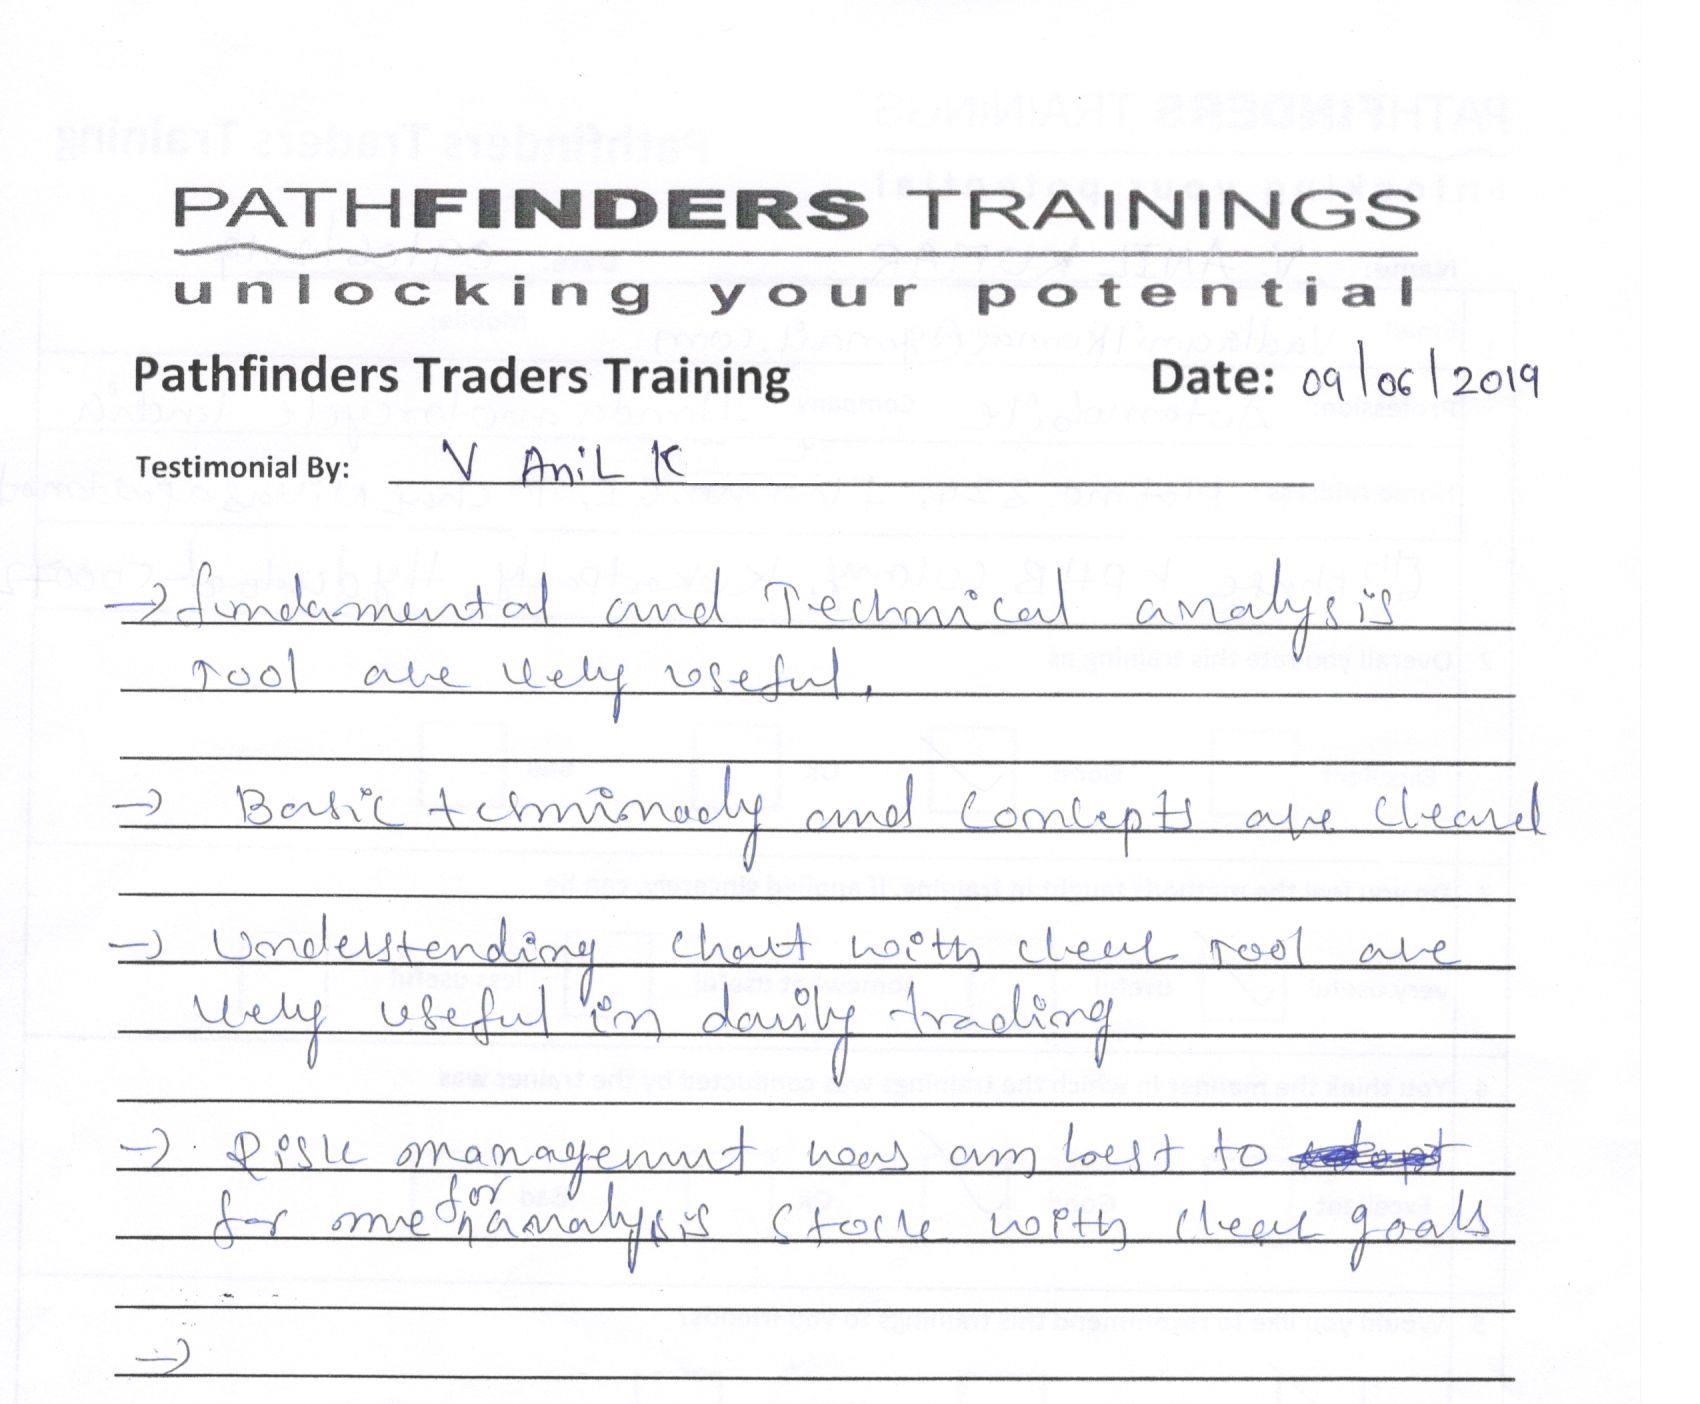 PATHFINDERS TRAININGS
unlocking your potential
Pathfinders Traders Training Date: 09/06/2019
Testimonial By: V AniL K
→ fundamental and Technical analysis
Tool are very useful.
→ Basic and Concepts are Cleared
→ Understending chart with clear Tool are
very useful in daily trading
→ Risk management was am best to
for me for analysis Stock with clear goals
→